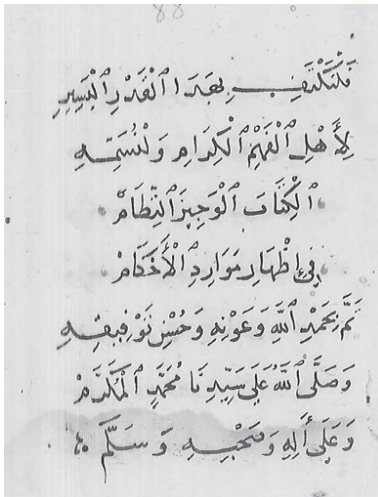 88
فَلْنَكْتَفِ بِهَذَا الْقَدْرِ الْيَسِيرِ
لِأَهْلِ الْفَهْمِ الْكِرَامِ وَلْنُسَمِّهِ
الْكِتَابَ الْوَجِيزَ النِّظَامْ
فِي إِظْهَارِ مَوَارِدِ الْأَحْكَامْ
تَمَّ بِحَمْدِ اللَّهِ وَعَوْنِهِ وَحُسْنِ تَوْفِيقِهِ
وَصَلَّى اللَّهُ عَلَى سَيِّدِنَا مُحَمَّدِ الْمُكَرَّمْ
وَعَلَى أَلِهِ وَصَحْبِهِ وَسَلَّمَ